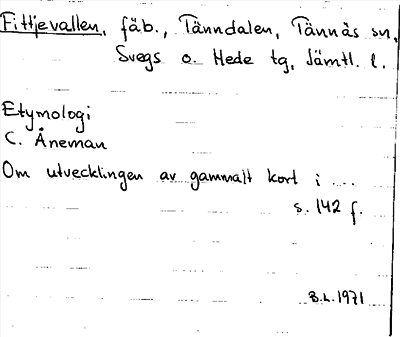 Fittjevallen, fäb., Tänndalen, Tännäs sn,
Svegs o. Hede tg, Jämtl. l.
Etymologi
C. Åneman
Om utvecklingen av gammalt kort i ...
s. 142 f.
B.L. 1971